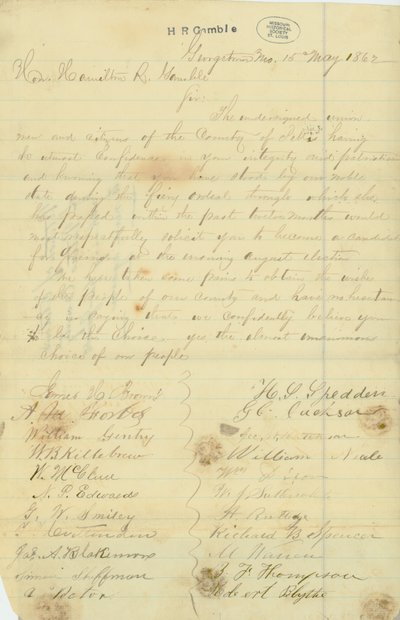 H R Gamble
MISSOURI
HISTORICAL
SOCIETY
ST. LOUIS
Georgetown Mo. 15 May 1862
Hon. Hamilton R. Gamble
Sir:
The undersigned union
men and citizens of the County of Pettis having
utmost confidence in your integrity and patriotism
and knowing that you have stood by our noble
State during the fiery ordeal through which she
has passed within the past twelve months would
most respectfully solicit you to become a candidate
for Governor at the ensuing august election
We have taken some pains to obtain the wishes
of the people of our County and have no hesitan-
cy in saying that we confidently believe you
to be the choice, yes, the almost unanimous
choice of our people
James H. Brown
H. S. Spedden
William Gentry
G. C. Cuckson
W. B. Killebrew
William Neale
W. McClue
N. P. Edwards
G. W. Smiley
Richard B. Spencer
Jas. A. Blakemore
M Warren
Hoffman
B. F. Thompson
Robert Blythe